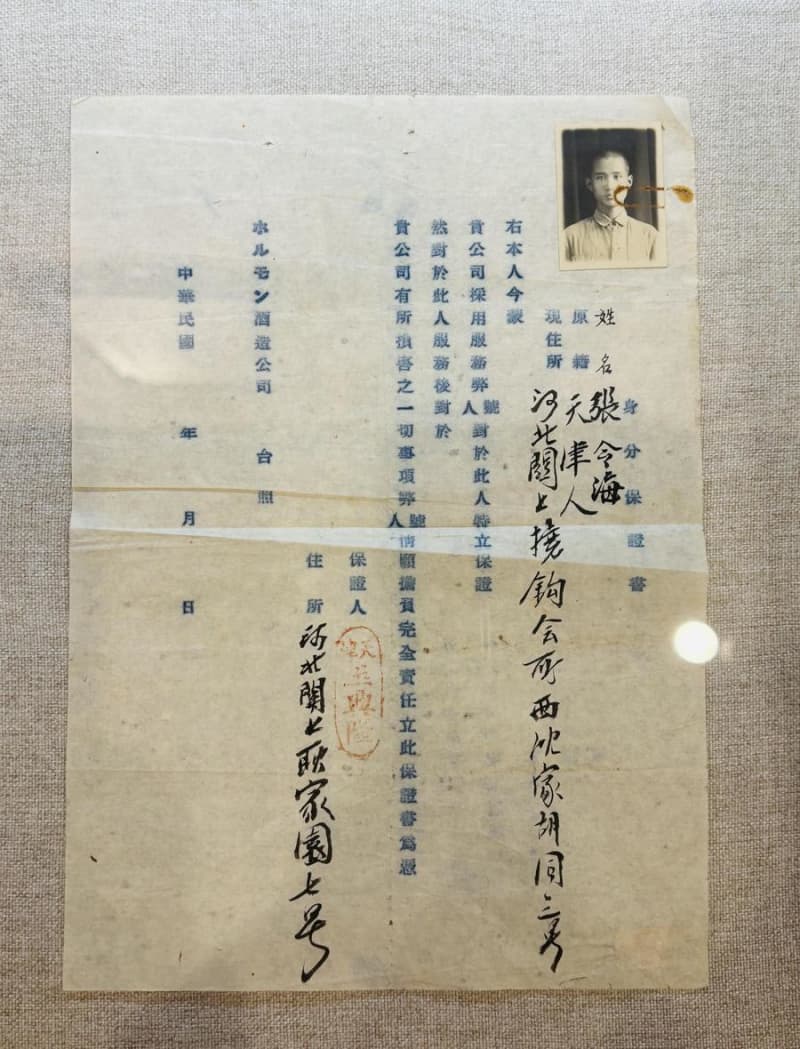 身分保證書
姓名 張令海
原籍 天津人
現住所 河北關上撓鈎会所西沈家胡同三号
右本人今蒙
貴公司採用服務弊號人對於此人特立保證
然對於此人服務後對於
貴公司有所損害之一切事項弊號人情願擔負完全責任立此保證書為憑
保證人
天津 益興隆
住所 河北關上耿家園七号
ホルモン酒造公司 台照
中華民國 年 月 日